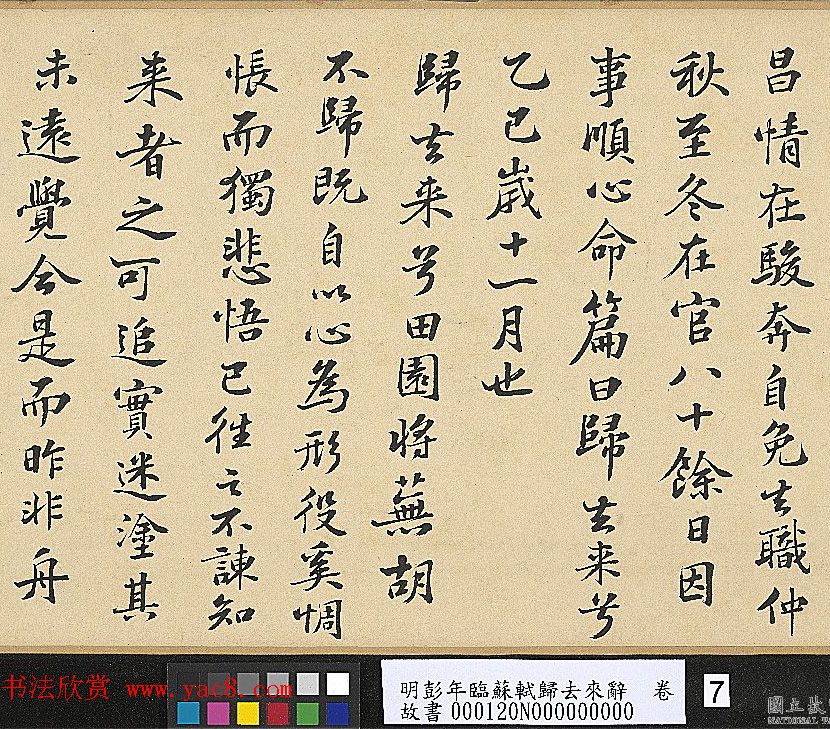 昌情在駿奔自免去職仲
秋至冬在官八十餘日因
事順心命篇曰歸去来兮
乙巳歲十一月也
歸去来兮田園將蕪胡
不歸既自以心為形役奚惆
悵而獨悲悟已往之不諫知
来者之可追實迷塗其
未遠覺今是而昨非舟
书法欣赏 www.yac8.com
明彭年臨蘇軾歸去來辭 卷
故書 000120N000000000
7
國立故
NATIONAL